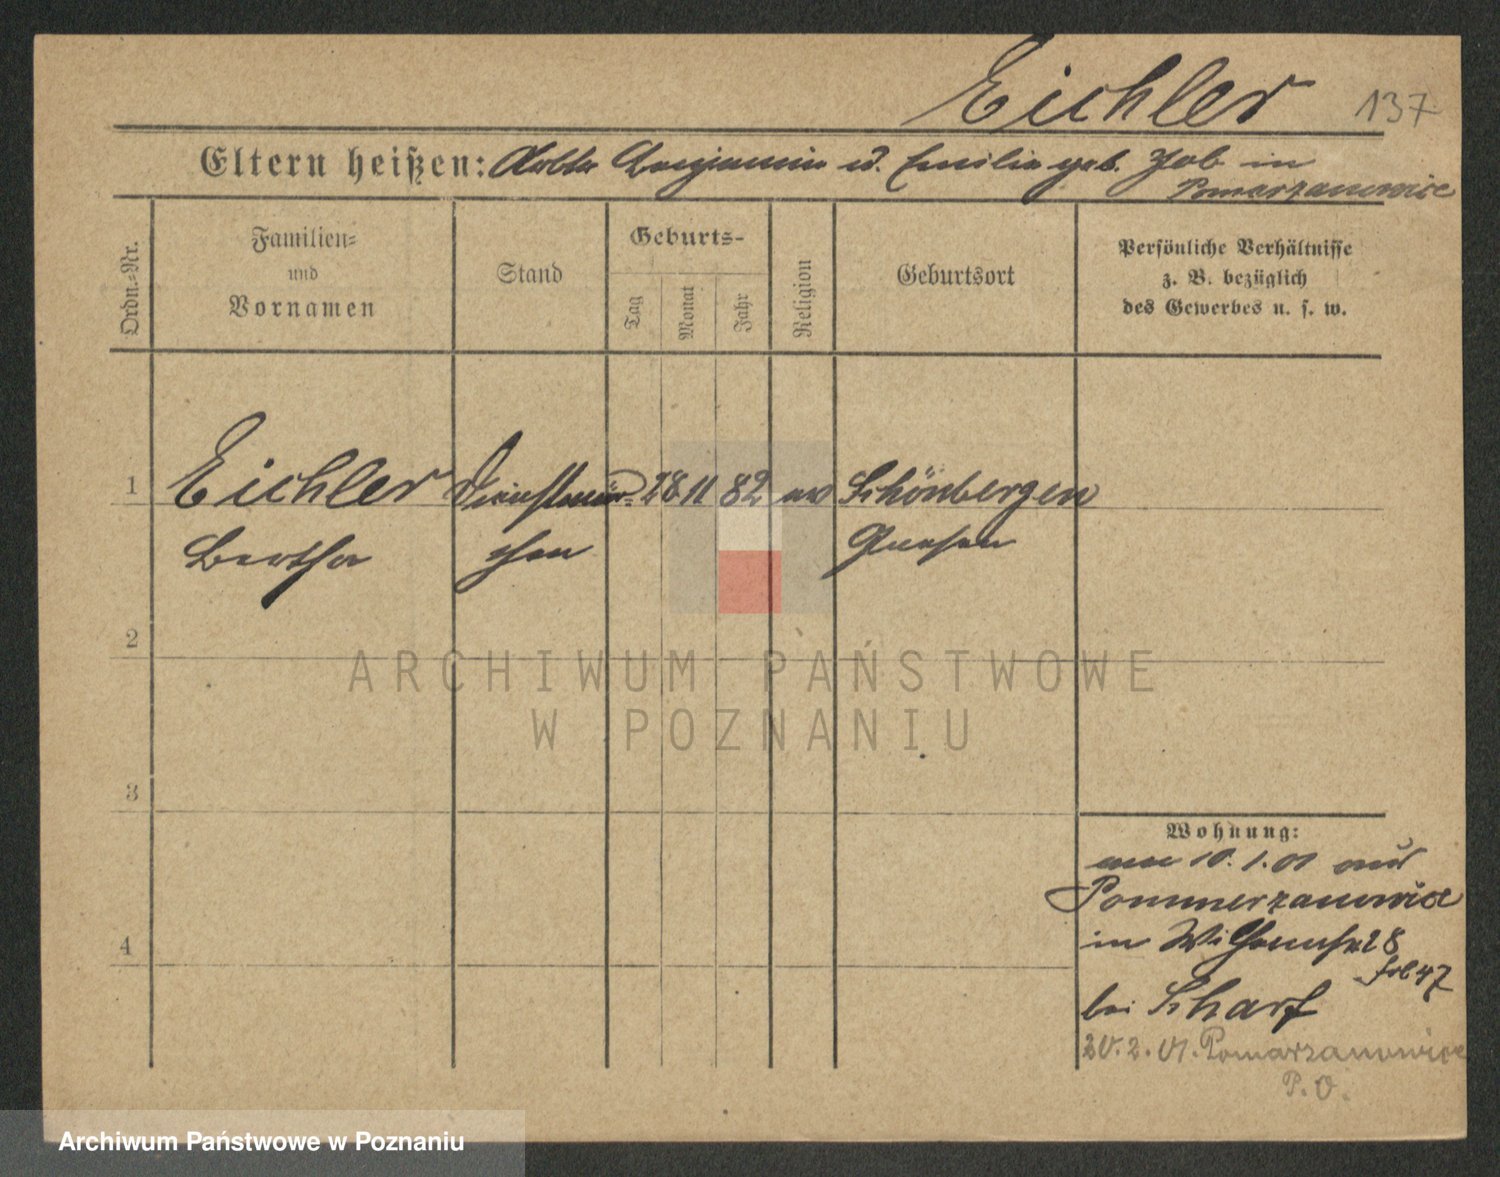 Eichler 137
Eltern heißen: Benjamin u. Emilie geb. Job in
Pomarzanowice
Ordn.-Nr.
Familien-
und
Vornamen
Stand
Geburts-
Tag
Monat
Jahr
Religion
Geburtsort
Persönliche Verhältnisse
z. B. bezüglich
des Gewerbes u. s. w.
1 Eichler Dienstmäd- 28 11 82 ev Schönbergen
Bertha chen Gnesen
2
3
4
Wohnung:
am 10.1.01 aus
Pommerzanowice
in 28
bei Scharf
20.2.01. Pomarzanowice
P.O.
ARCHIWUM PAŃSTWOWE
W POZNANIU
Archiwum Państwowe w Poznaniu